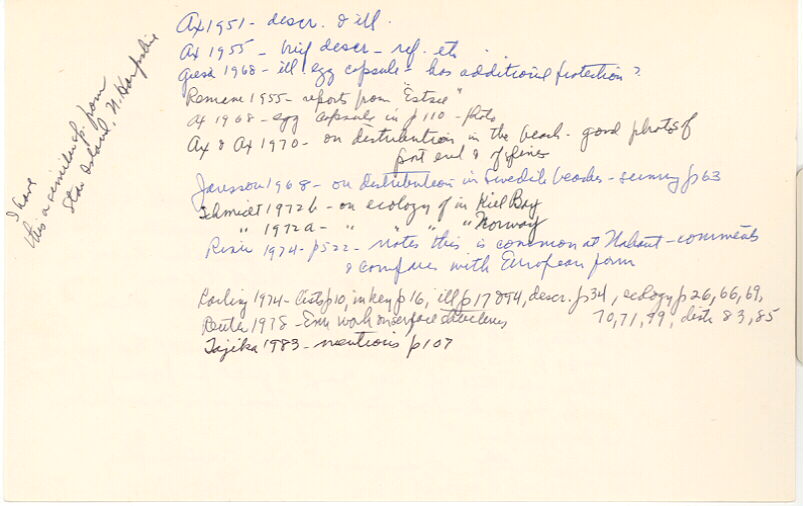 Ax 1951 - descr. & ill.
Ax 1955 - brief descr - ref. etc.
Giesa 1968 - ill. egg capsule - has additional protection?
Remane 1955 - reports from "Estsee"
Ax 1968 - egg capsules in p 110 - photo
Ax & Ax 1970 - on distribution in the beach - good photos of
post end & of spines
Jansson 1968 - on distribution in Swedish beaches - summary p 63
Schmidt 1972b - on ecology of in Kiel Bay
" 1972a - " " " " Norway
Riser 1974 - p 522 - notes this is common at Nahant - comments
& compares with European form
Karling 1974 - lists p 10, in key p 16, ill p 17 & 94, descr. p 34, ecology p 26, 66, 69,
70, 71, 99, distr 83, 85
Reuter 1978 - E.M. work on surface structures
Tajika 1983 - mentions p 107
I have
this or similar sp. from
Star Island, N. Hampshire